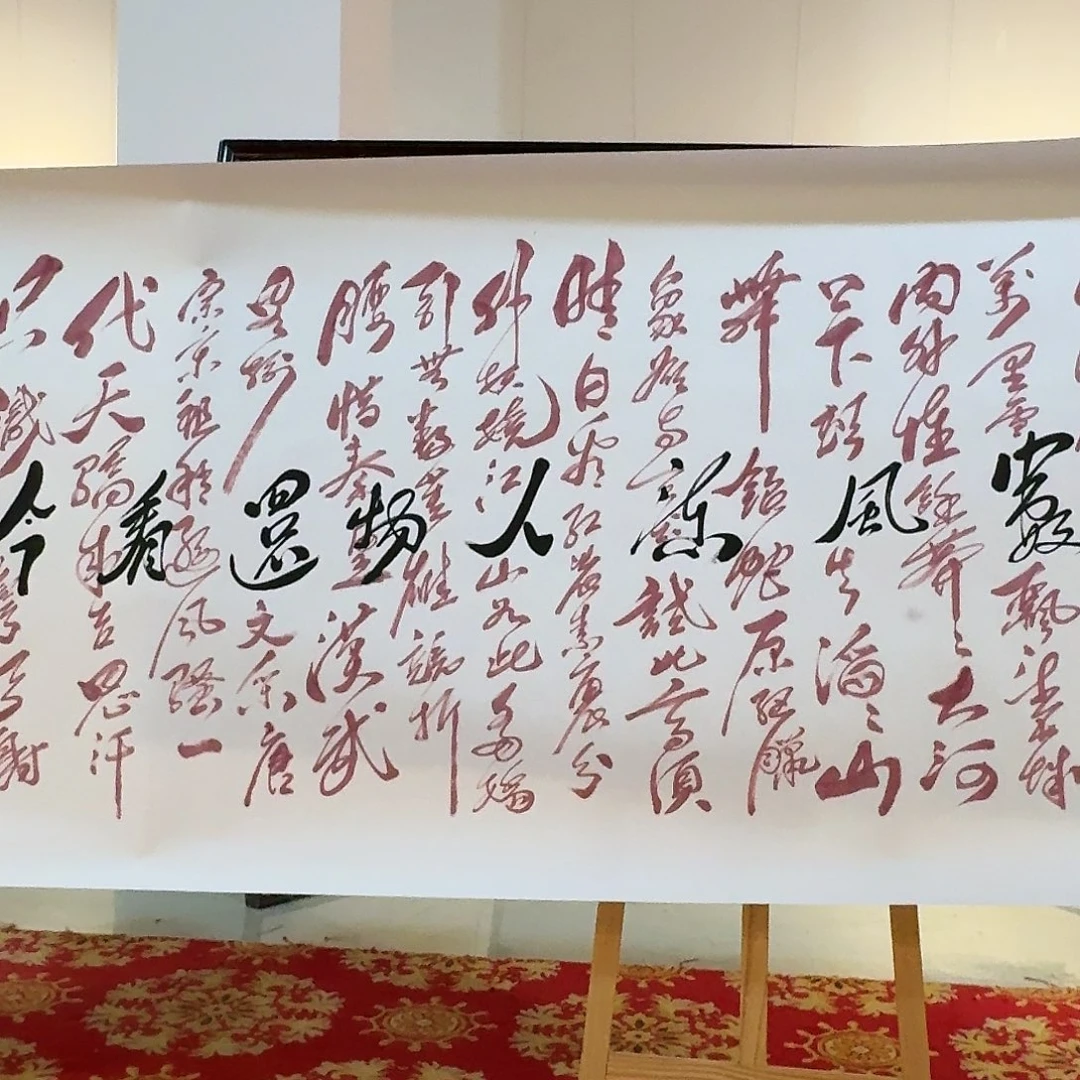 萬里雪飄望長城
內外惟餘莽〻大河
上下頓失滔〻山
舞銀蛇原馳臘
象欲與試比高須
晴日看紅裝素裹分
外妖嬈江山如此多嬌
引無數英雄競折
腰惜秦皇漢武
略輸文采唐
宗宋祖稍遜風騷一
代天驕成吉思汗
只識彎弓射
數風流人物還看今